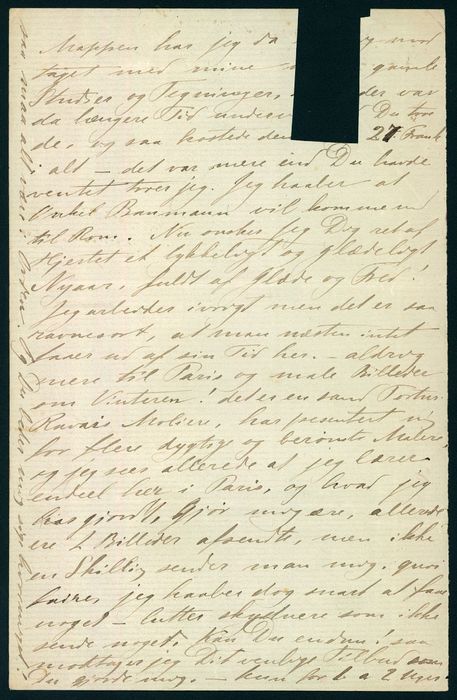 Mappen har jeg da
taget med mine gamle
Studier og Tegninger, der var
da længere Tid underveis Du troe
de, og saa kostede den 27. Frank
i alt – det var mere end Du havde
ventet troer jeg. Jeg haaber at
Onkel Baumann vil komme ned
til Rom. Nu ønsker jeg Dig ret af
Hjertet et lykkeligt og glædeligt
Nyaar, fuldt af Glæde og Fred!
Jeg arbeider ivrigt men det er saa
ravnesort, at man næsten intet
faaer ud af sin Tid her. – aldrig
mere til Paris og male Billeder
om Vinteren! det er en sand Tortur.
Ravais Moliere, har præsentert mig
for flere dygtige og berømte Malere,
og jeg sees allerede at jeg lærer
endeel her i Paris, og hvad jeg
har gjordt, gjør mig ære, allerede
ere 2 Billeder afsendte, men ikke
en Skilling sender man mig. quoi
faire, jeg haaber dog snart at faae
noget – Luttes skyldnere som ikke
sende noget. Kan Du endnu! saa
modtager jeg Dit venlige Tilbud som
Du gjorde mig. – kun for 1 a 2 Uger.
saa maa alt være i Orden. Og Du lader mig